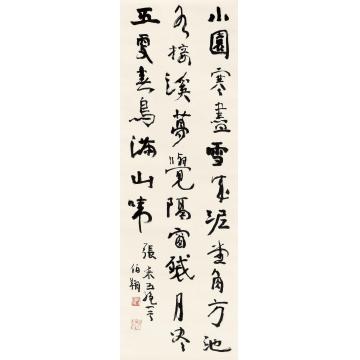 小園寒盡雪成泥堂角方池
水接溪夢覺隔窗殘月盡
五更春鳥滿山啼
張耒
伯